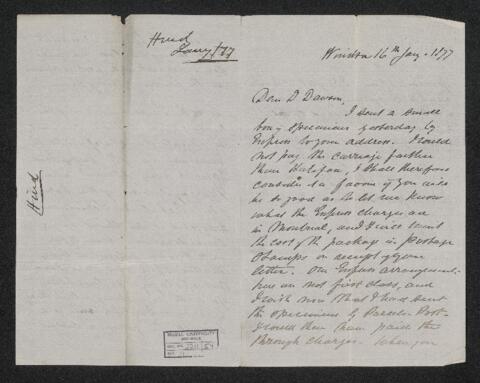 Hind
Jany/77
Hind
Windsor 16th Jany. 1877
Dear Dr Dawson,
I sent a small
box of specimens yesterday by
Express to your address. I could
not pay the carriage farther
than Halifax, I shall therefore
consider it a favor if you will
be so good as to let me know
what the Express charges are
in Montreal, and I will remit
the cost of the package in postage
stamps on receipt of your
letter. Our Express arrangements
here are not first class, and
I wish now that I had sent
the specimens by Parcel Post
I could then have paid the
through charges. When you
McGILL UNIVERSITY
ARCHIVES